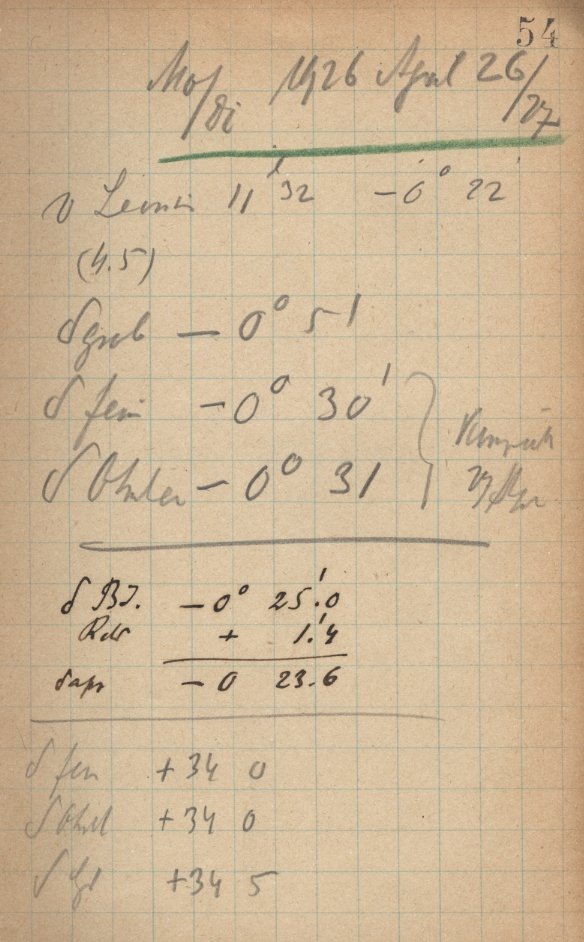 54
Mo/Di 1926 April 26/27
υ Leonis 11 32 −0° 22'
(4.5)
δ grob − 0° 51
δ fein − 0° 30'
δ Ohnler − 0° 31
27 Apr
δ B.J. − 0° 25.'0
Refr + 1.'4
δ app − 0 23.6
δ fein +34 0
δ Ohnl +34 0
δ +34 5